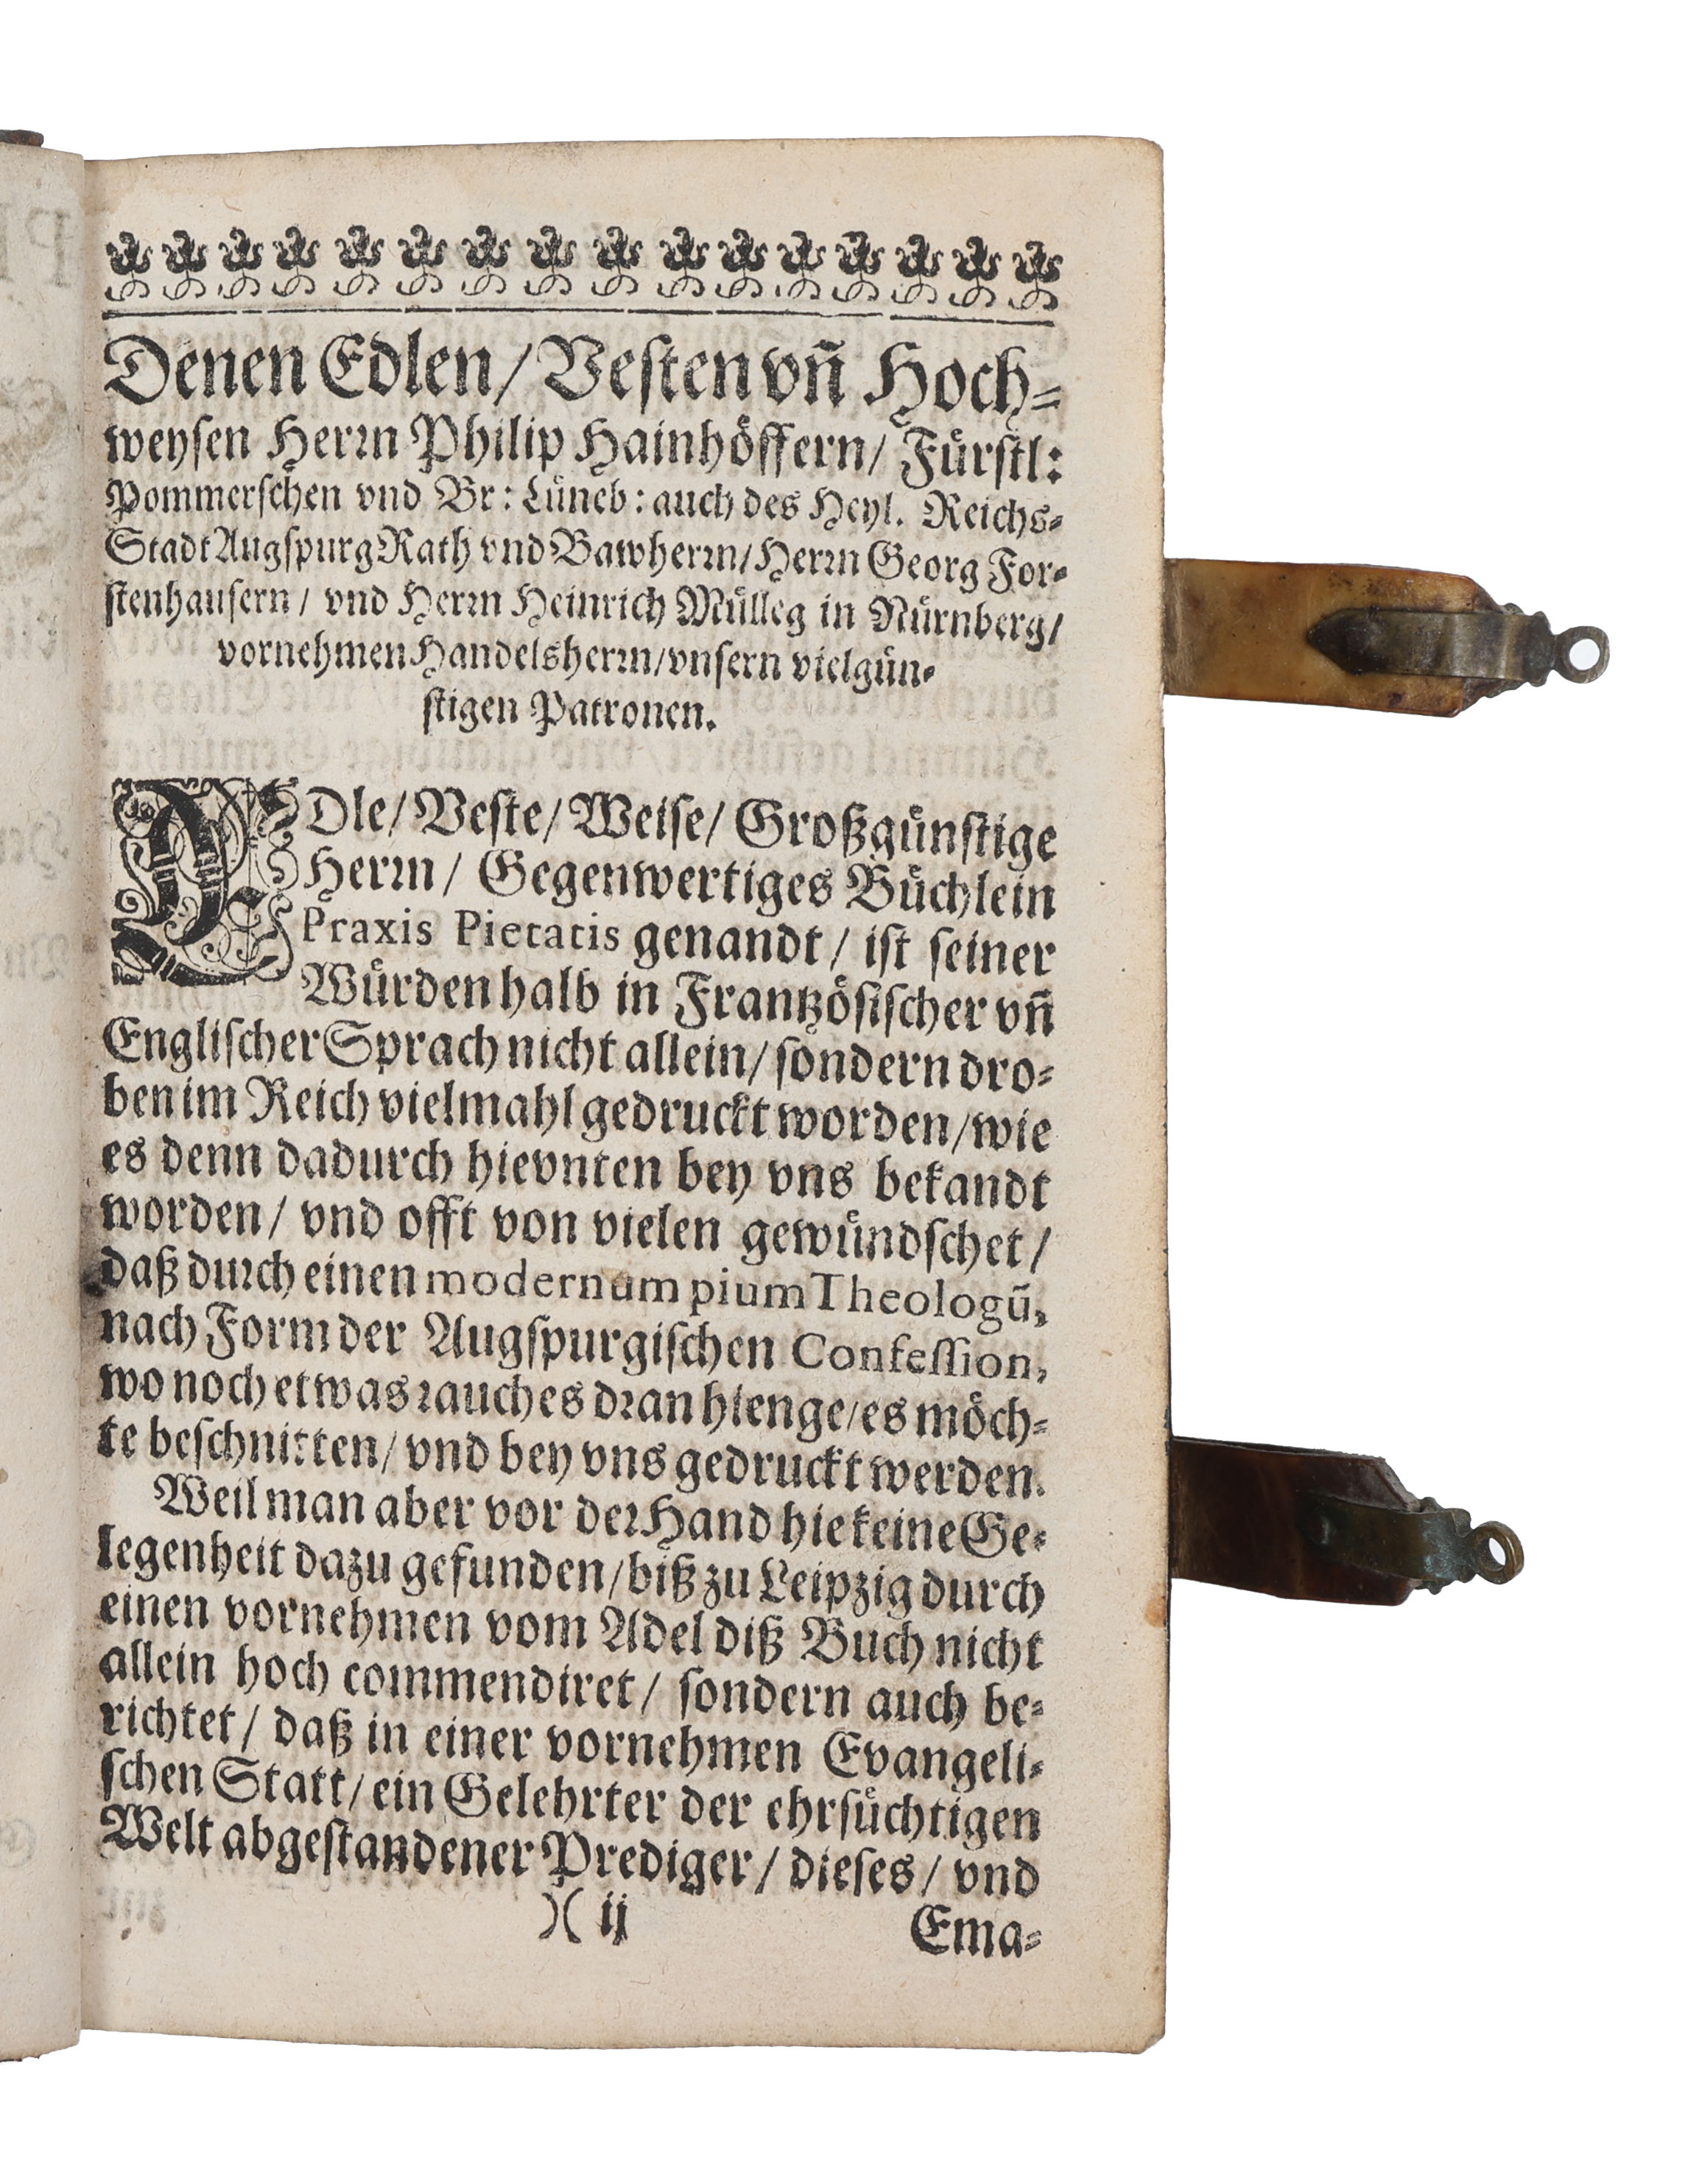 Denen Edlen/ Veſten vñ Hoch⸗
weyſen Herꝛn Philip Hainhöffern/ Fürſtl:
Pommerſchen vnd Br: Lüneb: auch des Heyl. Reichs⸗
Stadt Augſpurg Rath vnd Bawherꝛn/ Herꝛn Georg For⸗
ſtenhauſern/ vnd Herꝛn Heinrich Mülleg in Nürnberg/
vornehmen Handelsherꝛn/ vnſern vielgün⸗
ſtigen Patronen.
EDle/ Veſte/ Weiſe/ Großgünſtige
Herꝛn/ Gegenwertiges Büchlein
Praxis Pietatis genandt/ iſt ſeiner
Würden halb in Frantzöſiſcher vñ
Engliſcher Sprach nicht allein/ ſondern dro⸗
ben im Reich vielmahl gedruckt worden/ wie
es denn dadurch hievnten bey vns bekandt
worden/ vnd offt von vielen gewündſchet/
daß duꝛch einen modernum pium Theologũ,
nach Form der Augſpurgiſchen Confeſſion,
wo noch etwas ꝛauches dꝛan hienge/ es möch⸗
te beſchnitten/ vnd bey vns gedruckt werden.
Weil man aber vor deꝛ Hand hie keine Ge⸗
legenheit dazu gefunden/ biß zu Leipzig durch
einen vornehmen vom Adel diß Buch nicht
allein hoch commendiret/ ſondern auch be⸗
richtet/ daß in einer vornehmen Evangeli⸗
ſchen Statt/ ein Gelehrter der ehrſüchtigen
Welt abgeſtandener Prediger/ dieſes/ vnd
)( ij Ema⸗